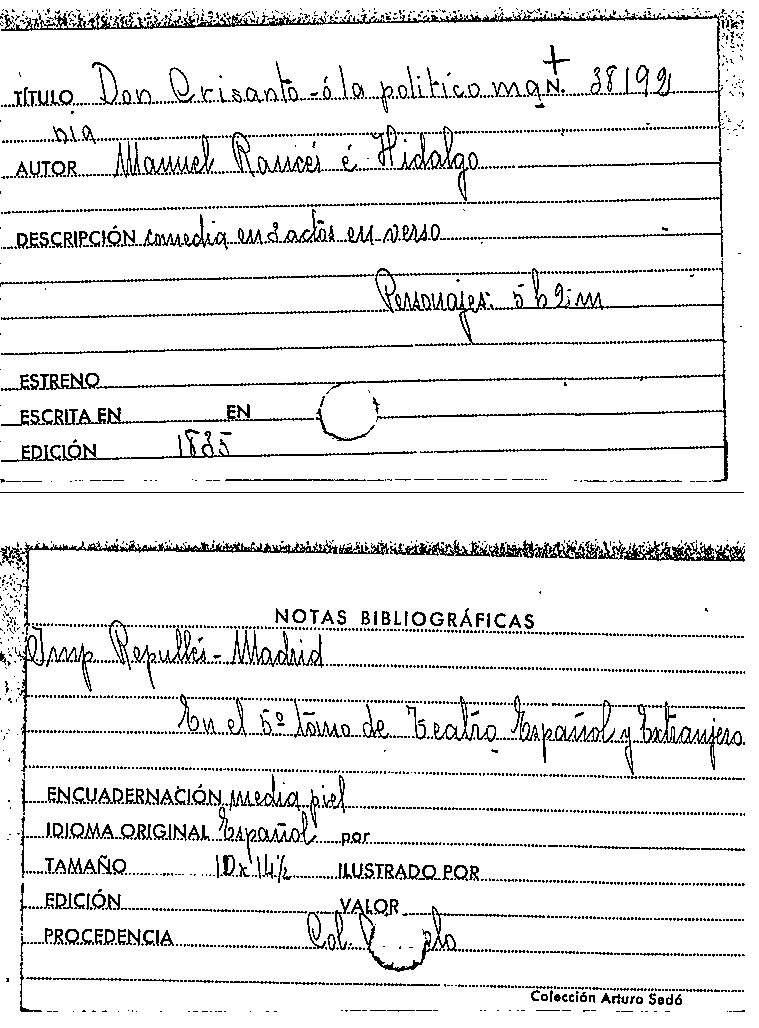 TÍTULO Don Crisanto-ó la politico ma N. 38192
nia
AUTOR Manuel Rancés é Hidalgo
DESCRIPCIÓN comedia en 3 actos en verso
Personajes: 5 h 2 m
ESTRENO
ESCRITA EN EN
EDICIÓN 1835
NOTAS BIBLIOGRÁFICAS
Imp Repullés - Madrid
En el 5º tomo de Teatro Español y Extranjero
ENCUADERNACIÓN media piel
IDIOMA ORIGINAL Español por
TAMAÑO 10x14½ ILUSTRADO POR
EDICIÓN VALOR
PROCEDENCIA Col.
Colección Arturo Sedó